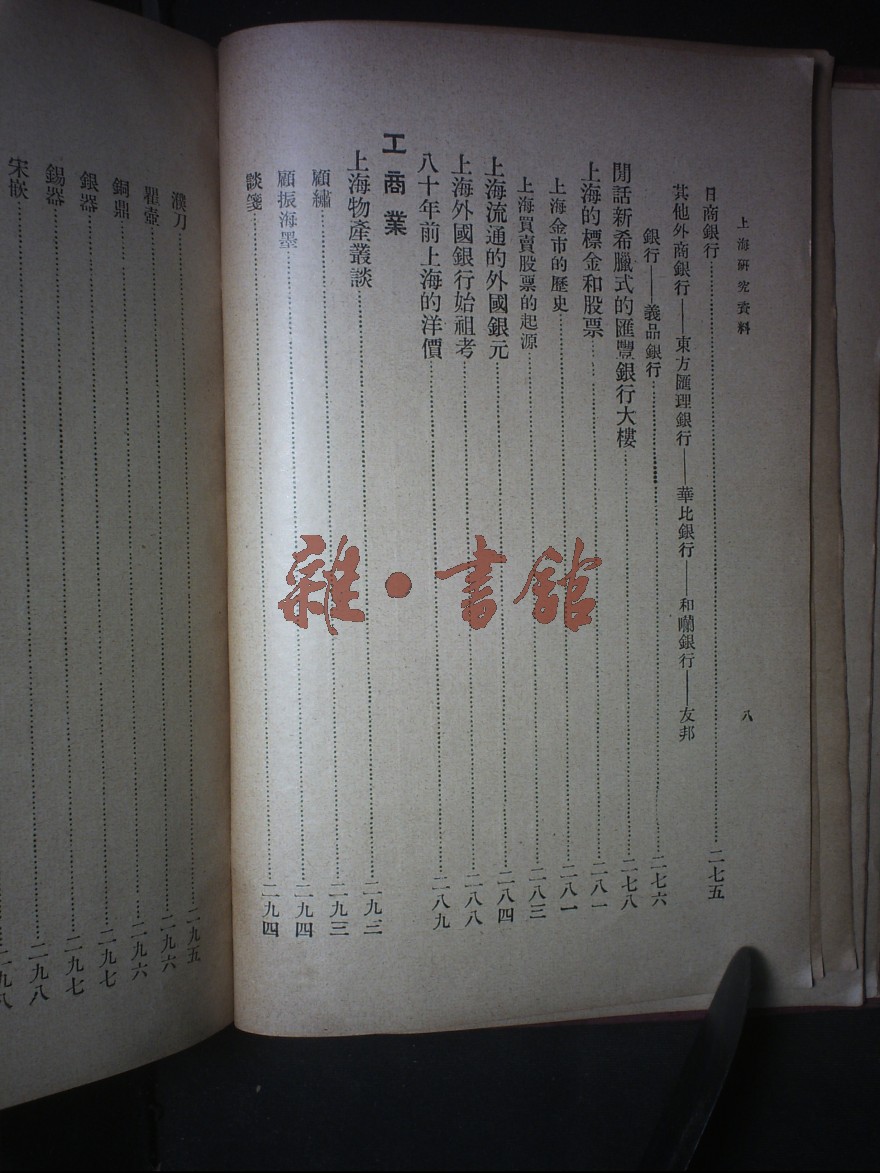 上海研究資料
八
日商銀行……二七五
其他外商銀行——東方匯理銀行——華比銀行——和囒銀行——友邦
銀行——義品銀行……二七六
閒話新希臘式的匯豐銀行大樓……二七八
上海的標金和股票……二八一
上海金市的歷史……二八一
上海買賣股票的起源……二八三
上海流通的外國銀元……二八四
上海外國銀行始祖考……二八八
八十年前上海的洋價……二八九
工商業
上海物產叢談……二九三
顧繡……二九三
顧振海墨……二九四
談箋……二九四
濮刀……二九五
壺……二九六
銅鼎……二九六
銀器……二九七
錫器……二九七
宋嵌……二九八
二九八
雜•書館